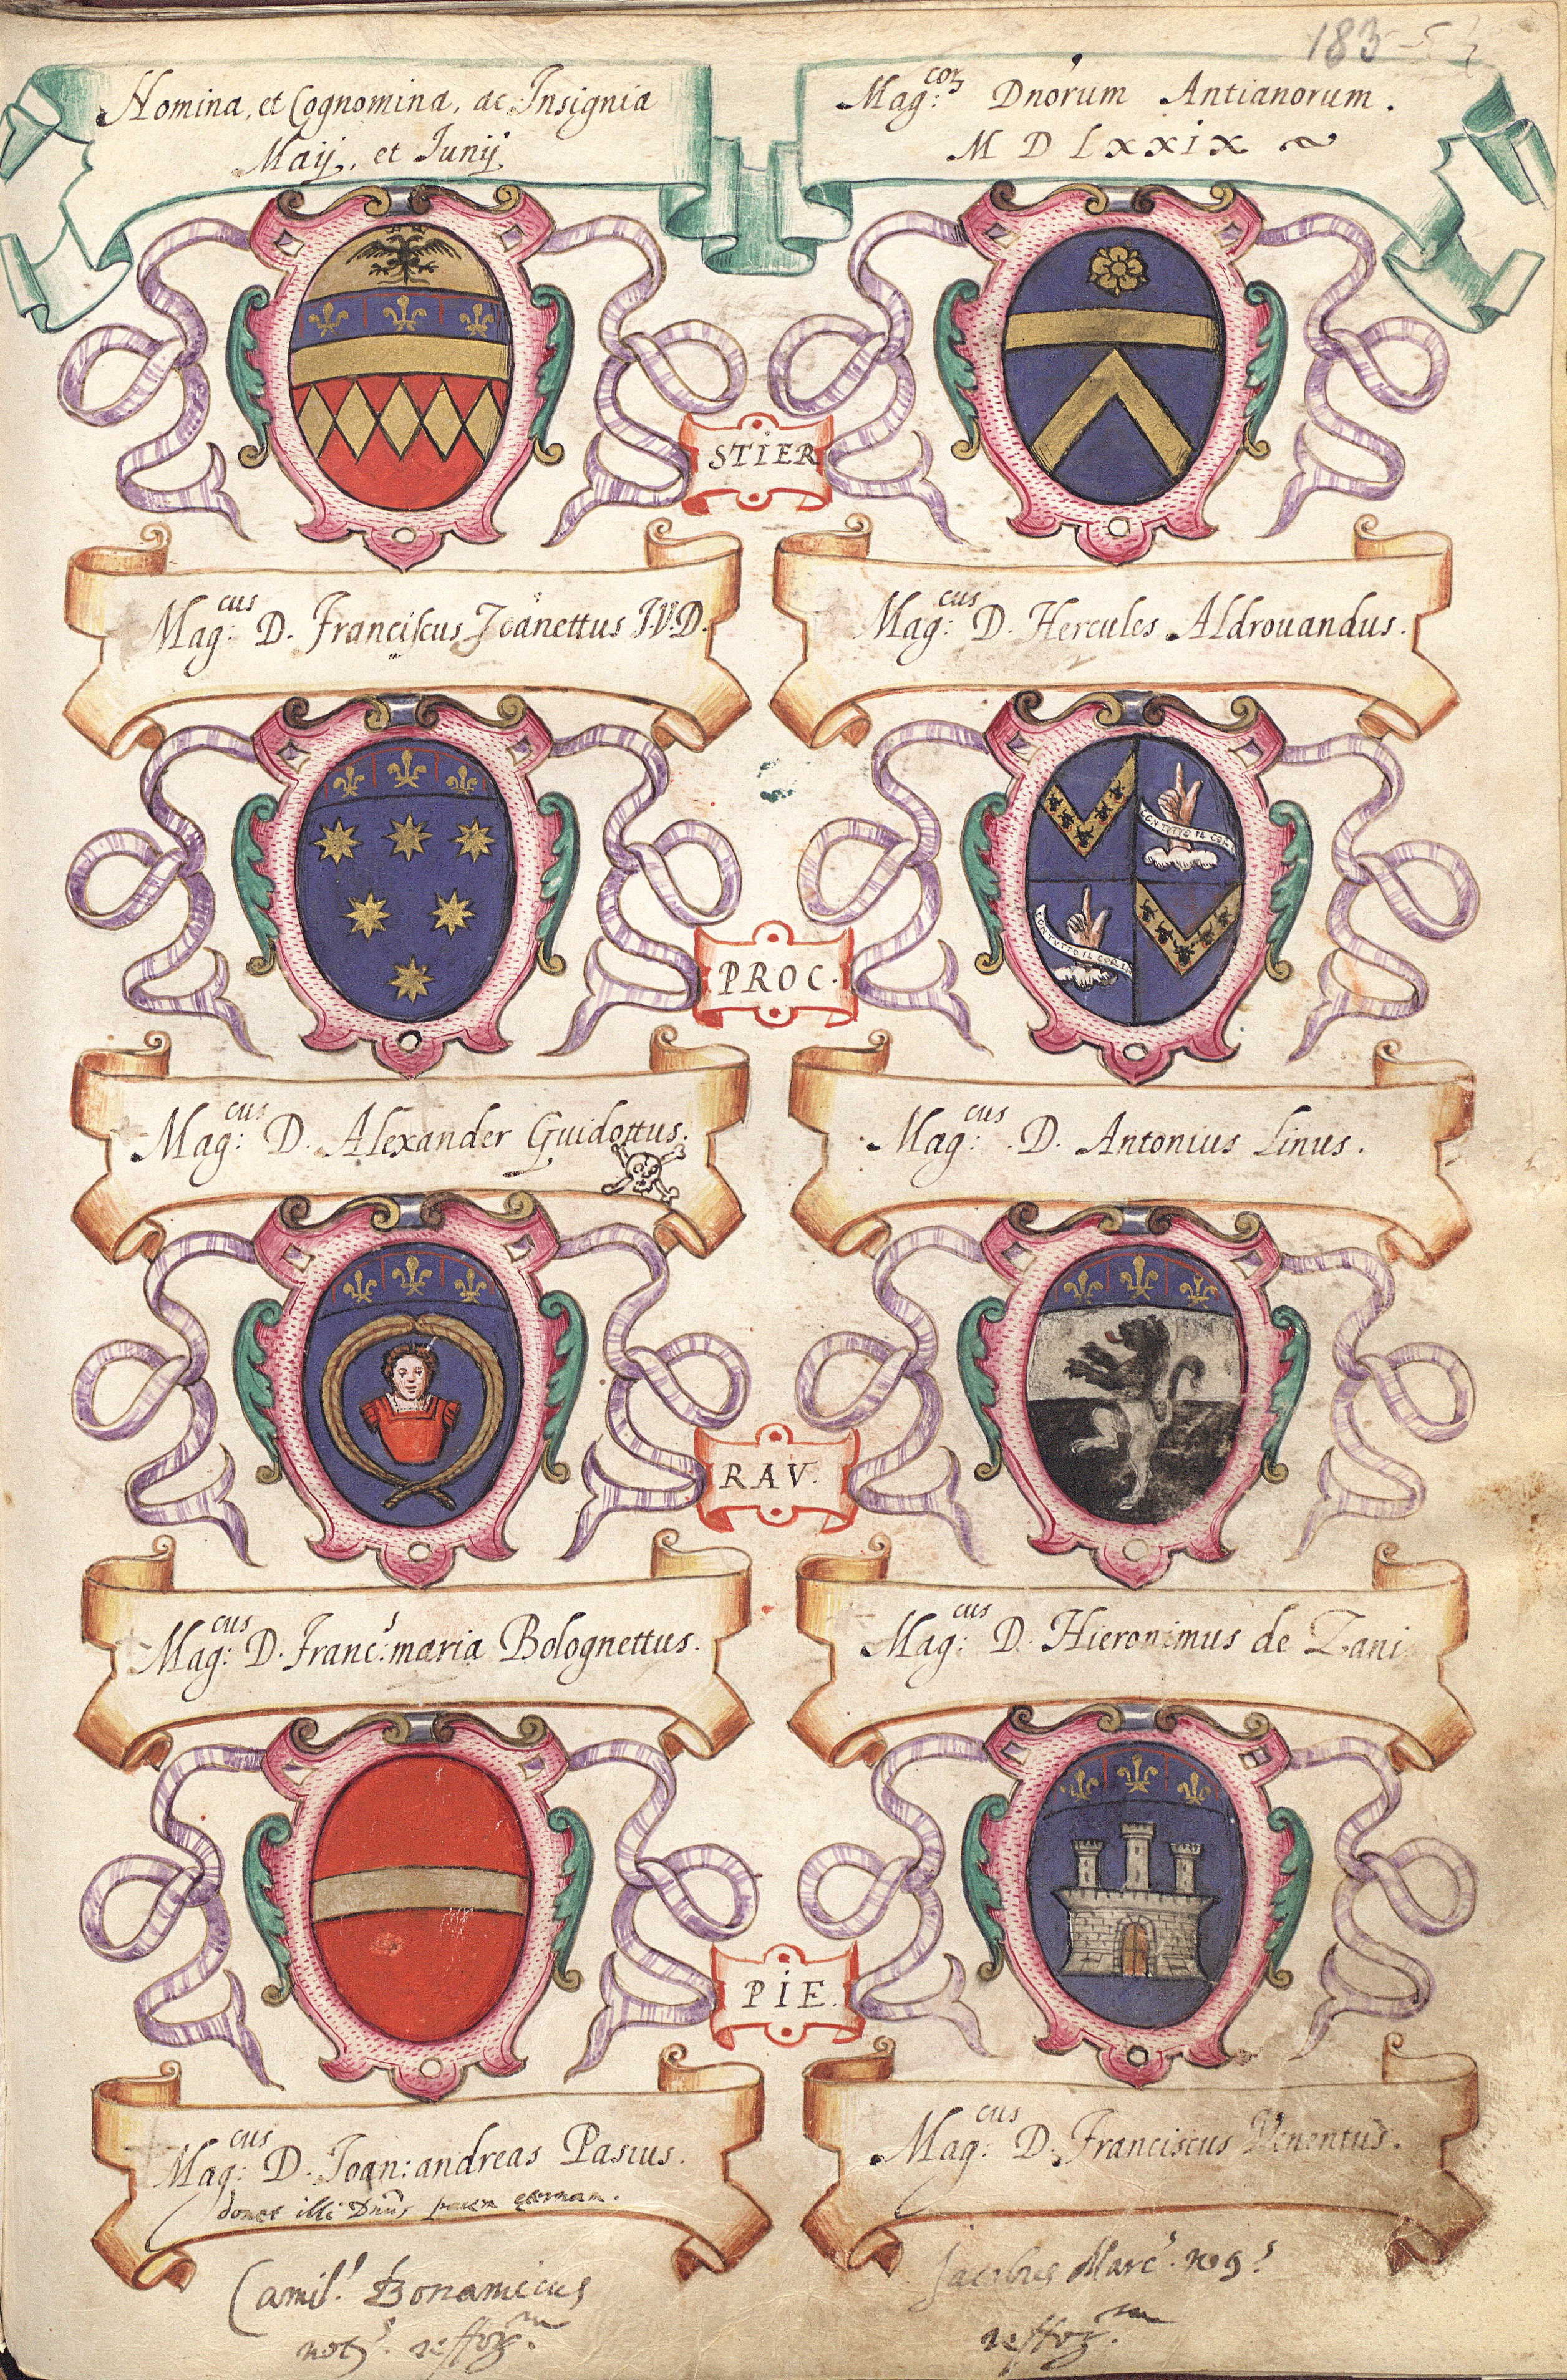 183
Homina, et Cognomina, ac Insignia
Maij, et Junij
Mag:cor Dnorum Antianorum.
M D L x x i x
STIER
Mag:cus D. Franciscus Joanettus J.V.D.
Mag:cus D. Hercules Aldrouandus.
CON TVTTO IL COR
CON TVTTO IL CORE
PROC.
Mag:cus D. Alexander Guidottus.
Mag:cus D. Antonius Linus.
RAV.
Mag:cus D. Franc:s maria Bolognettus.
Mag:cus D. Hieronimus de Zani
PIE.
Mag:cus D. Joan: andreas Pasius.
donet illi Dnus pacem
Mag:cus D. Franciscus Venentus.
Camil.s Bonamicus
not.s
Jacobus Marc.s